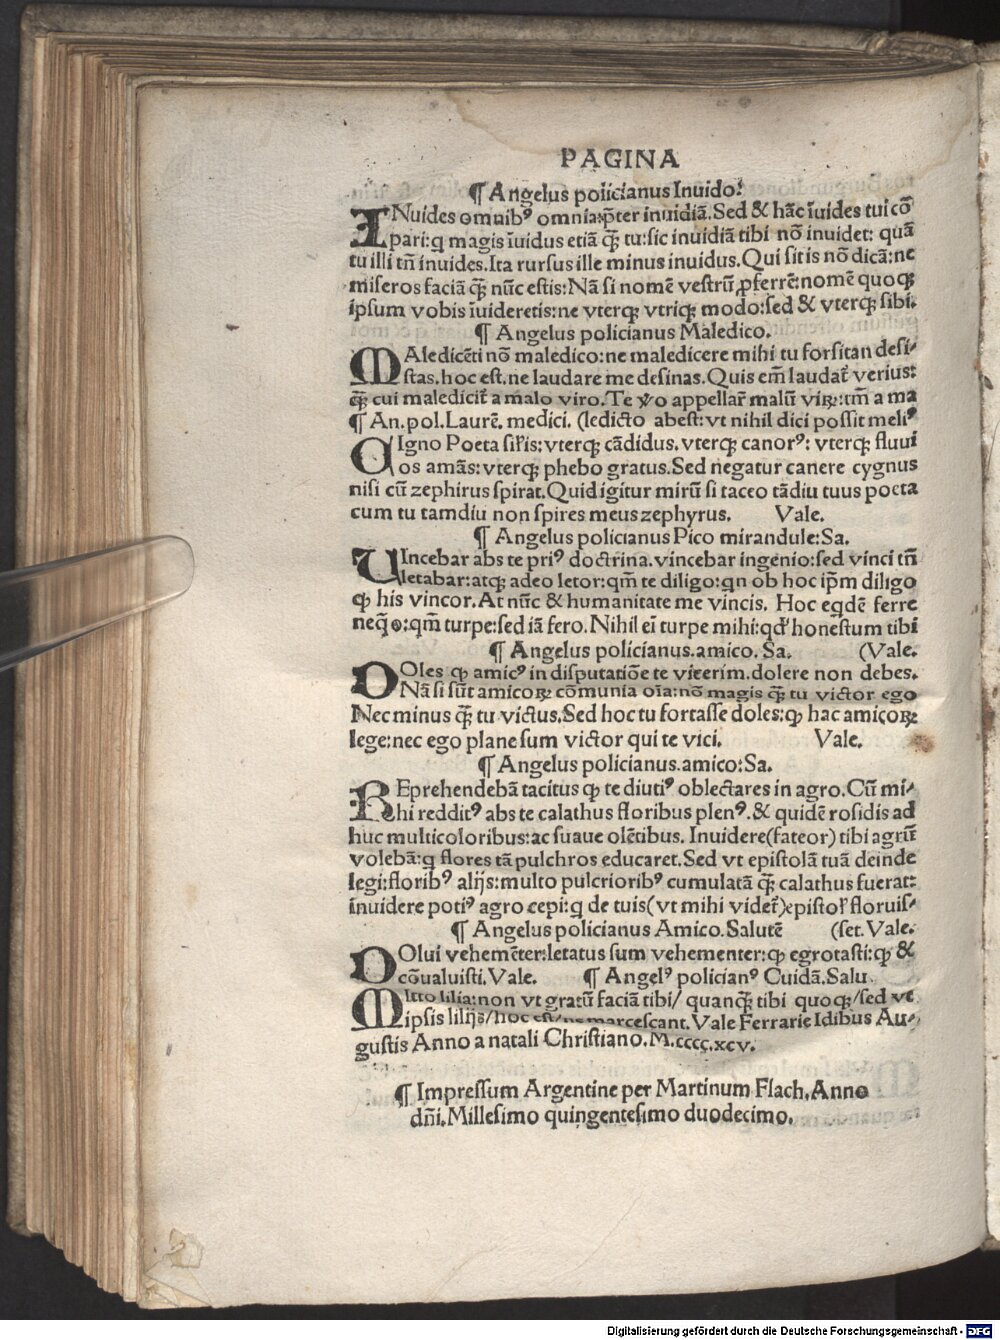 PAGINA
¶ Angelus policianus Inuido.
INuides omnibꝰ omnia:p̄ter inuidiā.Sed & hāc īuides tui cō
pari:q magis īuidus etiā q̄ꝫ tu:sic inuidiā tibi nō inuidet: quā
tu illi tn̄ inuides.Ita rursus ille minus inuidus.Qui sitis nō dicā:ne
miseros faciā q̄ꝫ nūc estis:Nā si nomē vestrū ꝓferrē:nomē quoqꝫ
ipsum vobis īuideretis:ne vterqꝫ vtriqꝫ modo:sed & vterqꝫ sibi.
¶ Angelus policianus Maledico.
MAledicēti nō maledico:ne maledicere mihi tu forsitan desi⸗
stas.hoc est.ne laudare me desinas.Quis em̄ laudat̄ verius:
q̄ꝫ cui maledicit̄ a malo viro.Te ꝟo appellar̄ malū viꝝ:tm̄ a ma
¶ An.pol.Laurē. medici. (ledicto abest:vt nihil dici possit meliꝰ
CIgno Poeta sil'is:vterqꝫ cādidus.vterqꝫ canorꝰ: vterqꝫ fluui
os amās:vterqꝫ phebo gratus.Sed negatur canere cygnus
nisi cū zephirus spirat.Quid igitur mirū si taceo tādiu tuus poeta
cum tu tamdiu non spires meus zephyrus. Vale.
¶ Angelus policianus Pico mirandule:Sa.
VIncebar abs te priꝰ doctrina.vincebar ingenio:sed vinci tn̄
letabar:atqꝫ adeo letor:qm̄ te diligo:qn ob hoc ip̄m diligo
ꝙ his vincor.At nūc & humanitate me vincis. Hoc eqdē ferre
neq̄o:qm̄ turpe:sed iā fero.Nihil ei̅ turpe mihi:qd' honestum tibi
¶ Angelus policianus.amico. Sa. (Vale.
DOles ꝙ amicꝰ in disputatiōe te vicerim.dolere non debes.
Nā si sūt amicoꝝ cōmunia oīa:nō magis q̄ꝫ tu victor ego
Nec minus q̄ꝫ tu victus.Sed hoc tu fortasse doles:ꝙ hac amicoꝝ
lege:nec ego plane sum victor qui te vici. Vale.
¶ Angelus policianus.amico:Sa.
REprehendebā tacitus ꝙ te diutiꝰ oblectares in agro.Cū mi⸗
hi redditꝰ abs te calathus floribus plenꝰ.& quidē rosidis ad
huc multicoloribus:ac suaue olētibus. Inuidere(fateor) tibi agrū
volebā:q flores tā pulchros educaret.Sed vt epistolā tuā deinde
legi:floribꝰ alijs:multo pulcrioribꝰ cumulatā q̄ꝫ calathus fuerat:
inuidere potiꝰ agro cepi:q de tuis(vt mihi videt̄)epistol' floruis⸗
¶ Angelus policianus Amico.Salutē (set.Vale.
DOlui vehemēter:letatus sum vehementer:ꝙ egrotasti:ꝙ &
cōualuisti.Vale. ¶ Angelꝰ policianꝰ Cuidā.Salu.
MItto lilia:non vt gratū faciā tibi/ quanq̄ꝫ tibi quoqꝫ/sed vt
ipsis lilijs/hoc est/ne marcescant.Vale Ferrarie Idibus Au⸗
gustis Anno a natali Christiano.M.cccc.xcv.
¶ Impressum Argentine per Martinum Flach.Anno
dn̄i.Millesimo quingentesimo duodecimo.
Digitalisierung gefördert durch die Deutsche Forschungsgemeinschaft - DFG